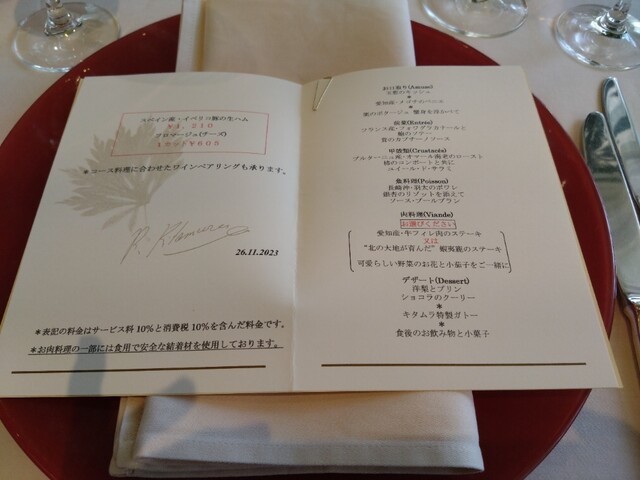 スペイン産・イベリコ豚の生ハム
¥3,210
フロマージュ(チーズ)
1カット¥605
*コース料理に合わせたワインペアリングも承ります。
26.11.2023
*表記の料金はサービス料10%と消費税10%を含んだ料金です。
*お肉料理の一部には食用で安全な結着材を使用しております。
お口取り(Amuse)
*
前菜(Entrée)
フランス産・フォワグラカナールと
甲殻類(Crustacés)
ブルターニュ産・オマール海老のロースト
桃のコンポートと共に
ユイール・ド・サラミ
魚料理(Poisson)
長崎沖・羽太のポワレ
銀杏のリゾットを添えて
ソース・ブールブラン
肉料理(Viande)
お選びください
愛知産・牛フィレ肉のステーキ
又は
“北の大地が育んだ”蝦夷鹿のステーキ
可愛らしい野菜のお花と小茄子をご一緒に
デザート(Dessert)
洋梨とプリン
ショコラのクーリー
*
キタムラ特製ガトー
*
食後のお飲み物と小菓子